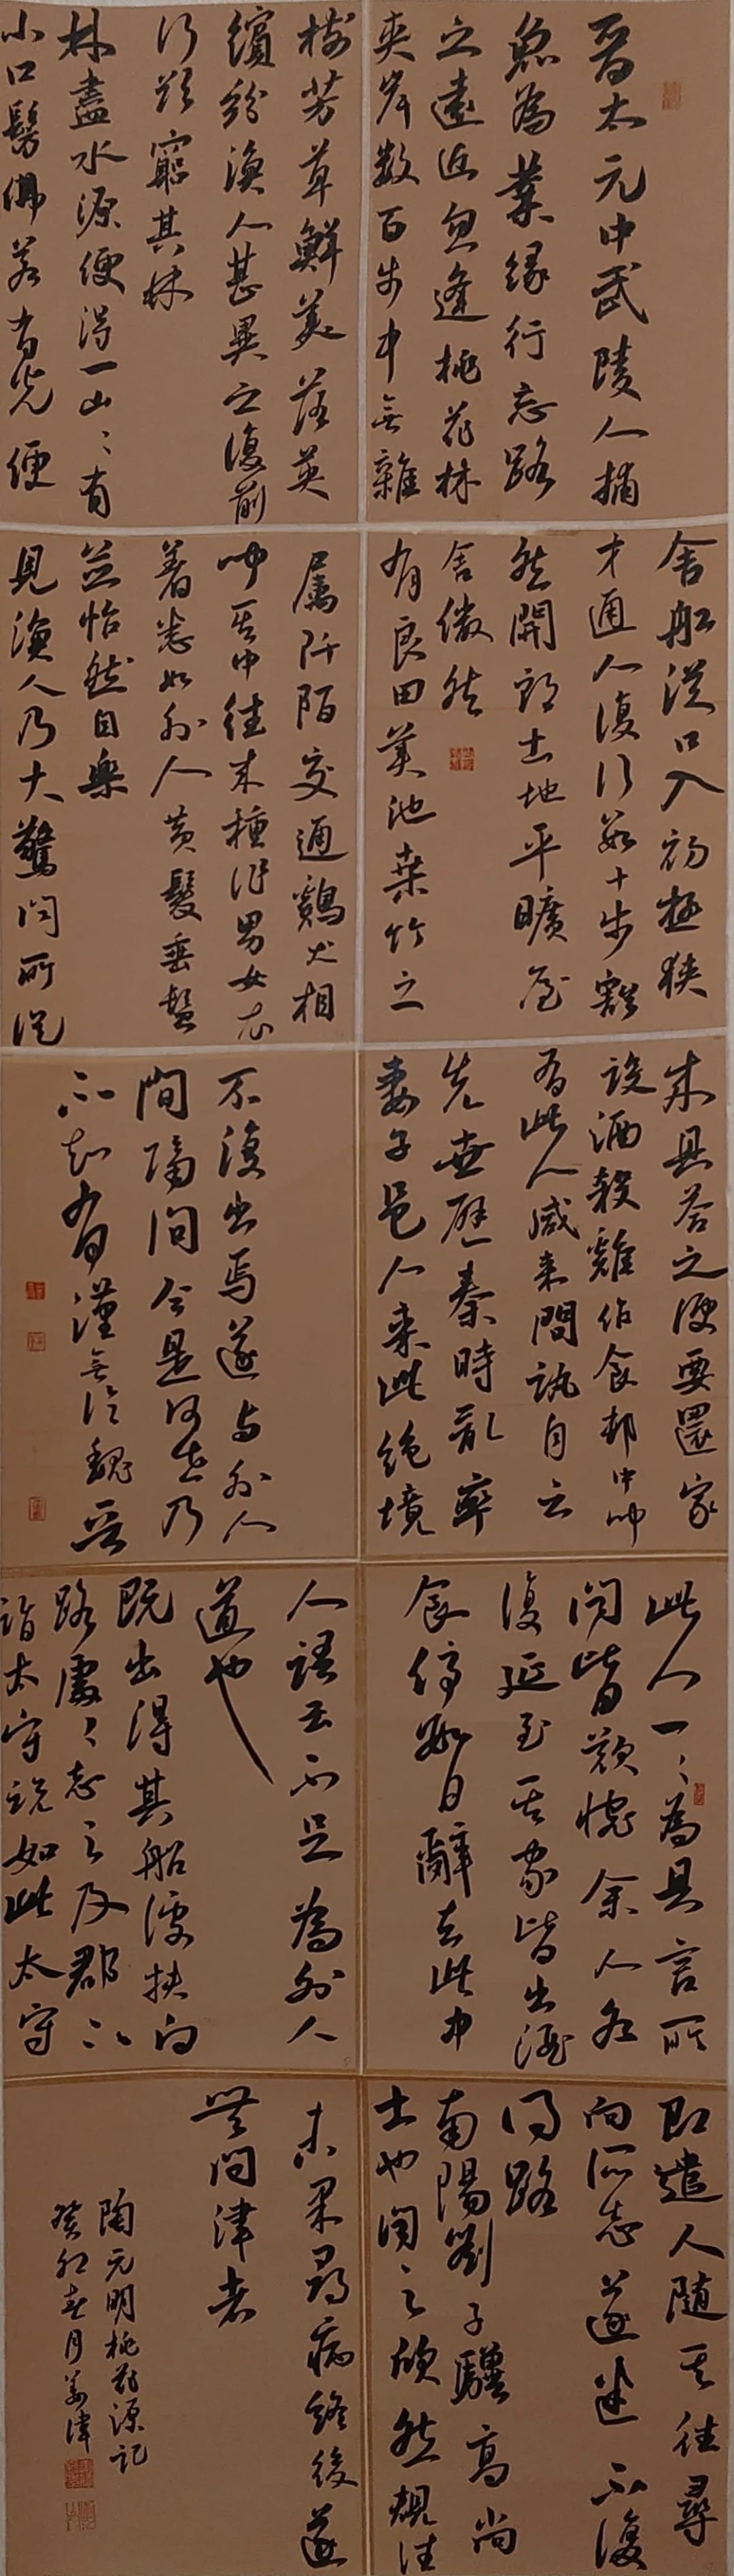 晋太元中武陵人捕
魚為業緣行忘路
之遠近忽逢桃花林
夾岸數百步中無雜
樹芳草鮮美落英
繽紛漁人甚異之復前
行欲窮其林
林盡水源便得一山、有
小口髣佛若有光便
舍船從口入初極狹
才通人復行數十步豁
然開朗土地平曠屋
舍儼然
有良田美池桑竹之
屬阡陌交通鷄犬相
聞其中往来種作男女衣
着悉如外人黄髮垂髫
並怡然自樂
見漁人乃大驚問所從
来具答之便要還家
設酒殺雞作食邨中聞
有此人咸来問訊自云
先世避秦時亂率
妻子邑人来此絕境
不復出焉遂与外人
間隔問今是何世乃
不知有漢無論魏晉
此人一、為具言所
聞皆歎惋余人各
復延至其家皆出酒
食停數日辭去此中
人語云不足為外人
道也
既出得其船便扶向
路處、志之及郡下
詣太守說如此太守
即遣人随其往尋
向所志遂迷不復
得路
南陽劉子驥高尚
士也聞之欣然規往
未果尋病終後遂
無問津者
陶元明桃花源記
癸卯春月姜偉